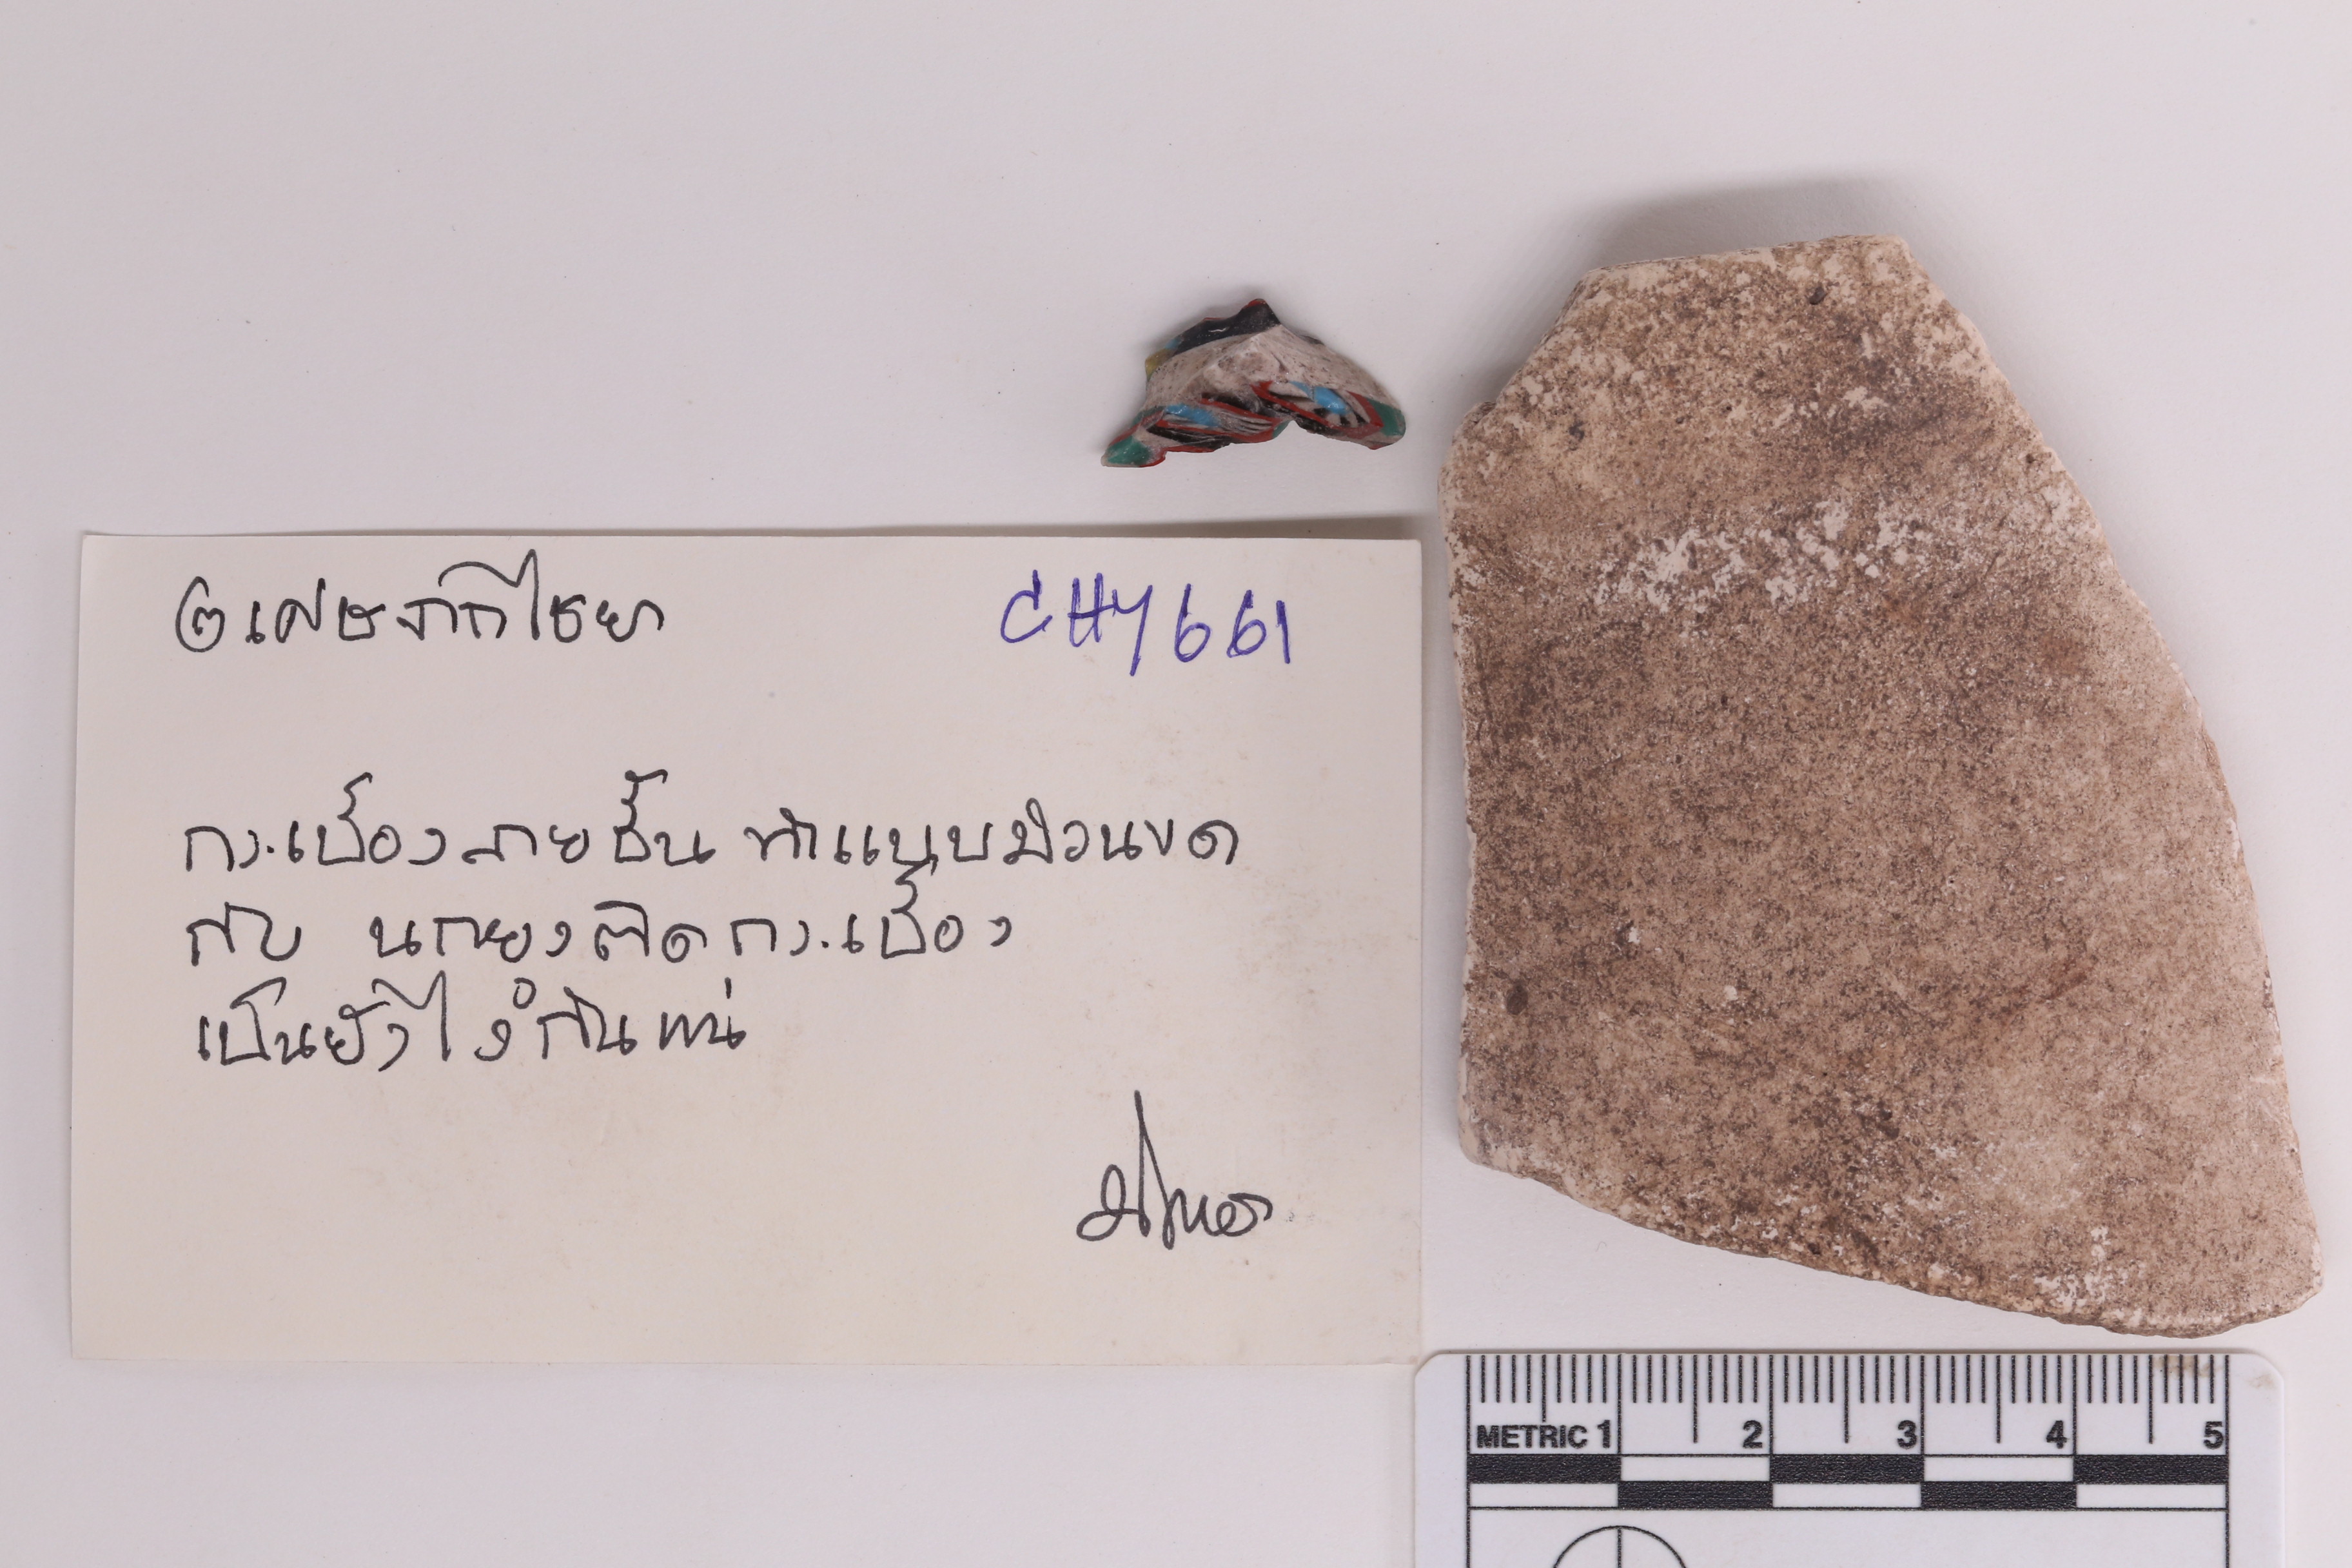 ๒ เศษจากไชยา
CHY661
กระเบื้องลายชิ้น ทำแบบม้วนขด
กับ นกยูงติดกระเบื้อง
เป็นยังไงกันแน่
METRIC 1 2 3 4 5